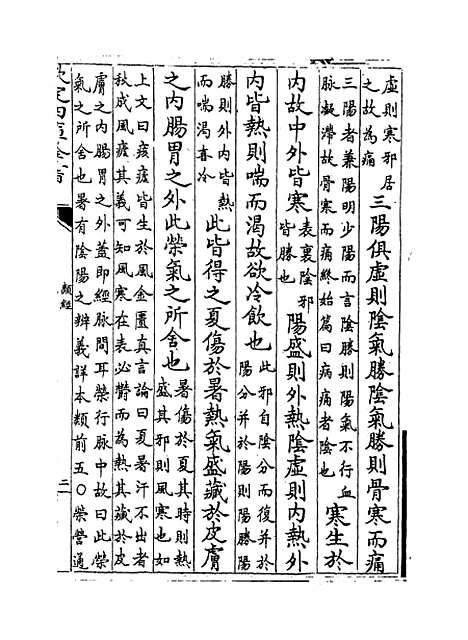 虛則寒邪居
之故為痛
三陽俱虛則陰氣勝陰氣勝則骨寒而痛
三陽者兼陽明少陽而言陰勝則陽氣不行血
脉凝滯故骨寒而痛終始篇曰病痛者陰也
寒生於
內故中外皆寒
表裏陰邪
皆勝也
陽盛則外熱陰虛則內熱外
內皆熱則喘而渴故欲冷飲也
此邪自陰分而復并於
陽分并於陽則陽勝陽
勝則外內皆熱
而喘渴喜冷
此皆得之夏傷於暑熱氣盛藏於皮膚
之內腸胃之外此榮氣之所舍也
暑傷於夏其時則熱
盛其邪則風寒也如
上文曰痎瘧皆生於風金匱真言論曰夏暑汗不出者
秋成風瘧其義可知風寒在表必鬱而為熱其藏於皮
膚之內腸胃之外蓋即經脉間耳榮行脉中故曰此榮
氣之所舍也暑有陰陽之辨義詳本類前五○榮營通
欽定四庫全書
類經